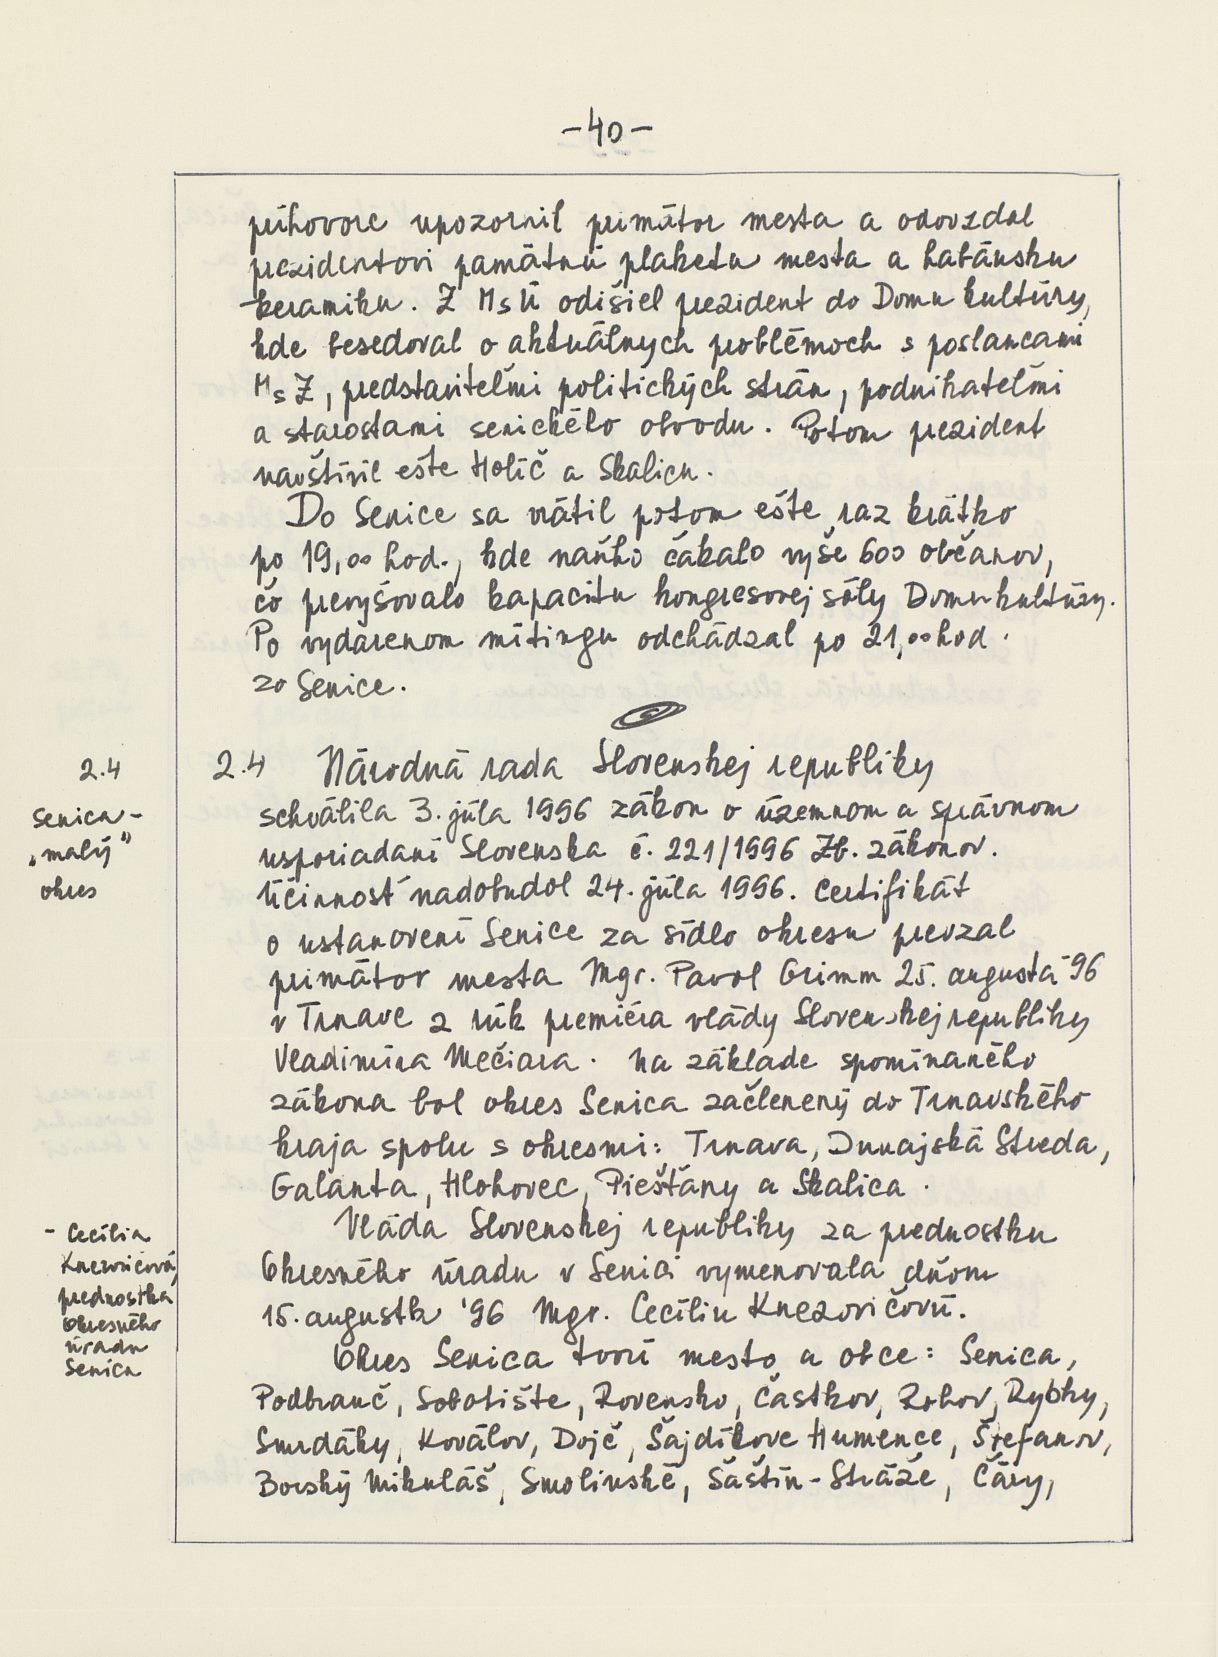 -40-
príhovore upozornil primátor mesta a odovzdal
prezidentovi pamätnú plaketu mesta a habánsku
keramiku. Z MsÚ odišiel prezident do Domu kultúry,
kde besedoval o aktuálnych problémoch s poslancami
MsZ, predstaviteľmi politických strán, podnikateľmi
a starostami senického obvodu. Potom prezident
navštívil ešte Holíč a Skalicu.
Do Senice sa vrátil potom ešte raz krátko
po 19,00 hod., kde naňho čakalo vyše 600 občanov,
čo prevyšovalo kapacitu kongresovej sály Domu kultúry.
Po vydarenom mítingu odchádzal po 21,00 hod.
zo Senice.
2.4
Senica -
„malý"
okres
2.4 Národná rada Slovenskej republiky
schválila 3. júla 1996 zákon o územnom a správnom
usporiadaní Slovenska č. 221/1996 Zb. zákonov.
Účinnosť nadobudol 24. júla 1996. Certifikát
o ustanovení Senice za sídlo okresu prevzal
primátor mesta Mgr. Pavol Grimm 25. augusta '96
v Trnave z rúk premiéra vlády Slovenskej republiky
Vladimíra Mečiara. Na základe spomínaného
zákona bol okres Senica začlenený do Trnavského
kraja spolu s okresmi: Trnava, Dunajská Streda,
Galanta, Hlohovec, Piešťany a Skalica.
- Cecília
Knezovičová,
prednostka
Okresného
úradu
Senica
Vláda Slovenskej republiky za prednostku
Okresného úradu v Senici vymenovala dňom
15. augusta '96 Mgr. Cecíliu Knezovičovú.
Okres Senica tvorí mesto a obce: Senica,
Podbranč, Sobotište, Rovensko, Častkov, Rohov, Rybky,
Smrdáky, Koválov, Dojč, Šajdíkove Humence, Štefanov,
Borský Mikuláš, Smolinské, Šaštín-Stráže, Čáry,